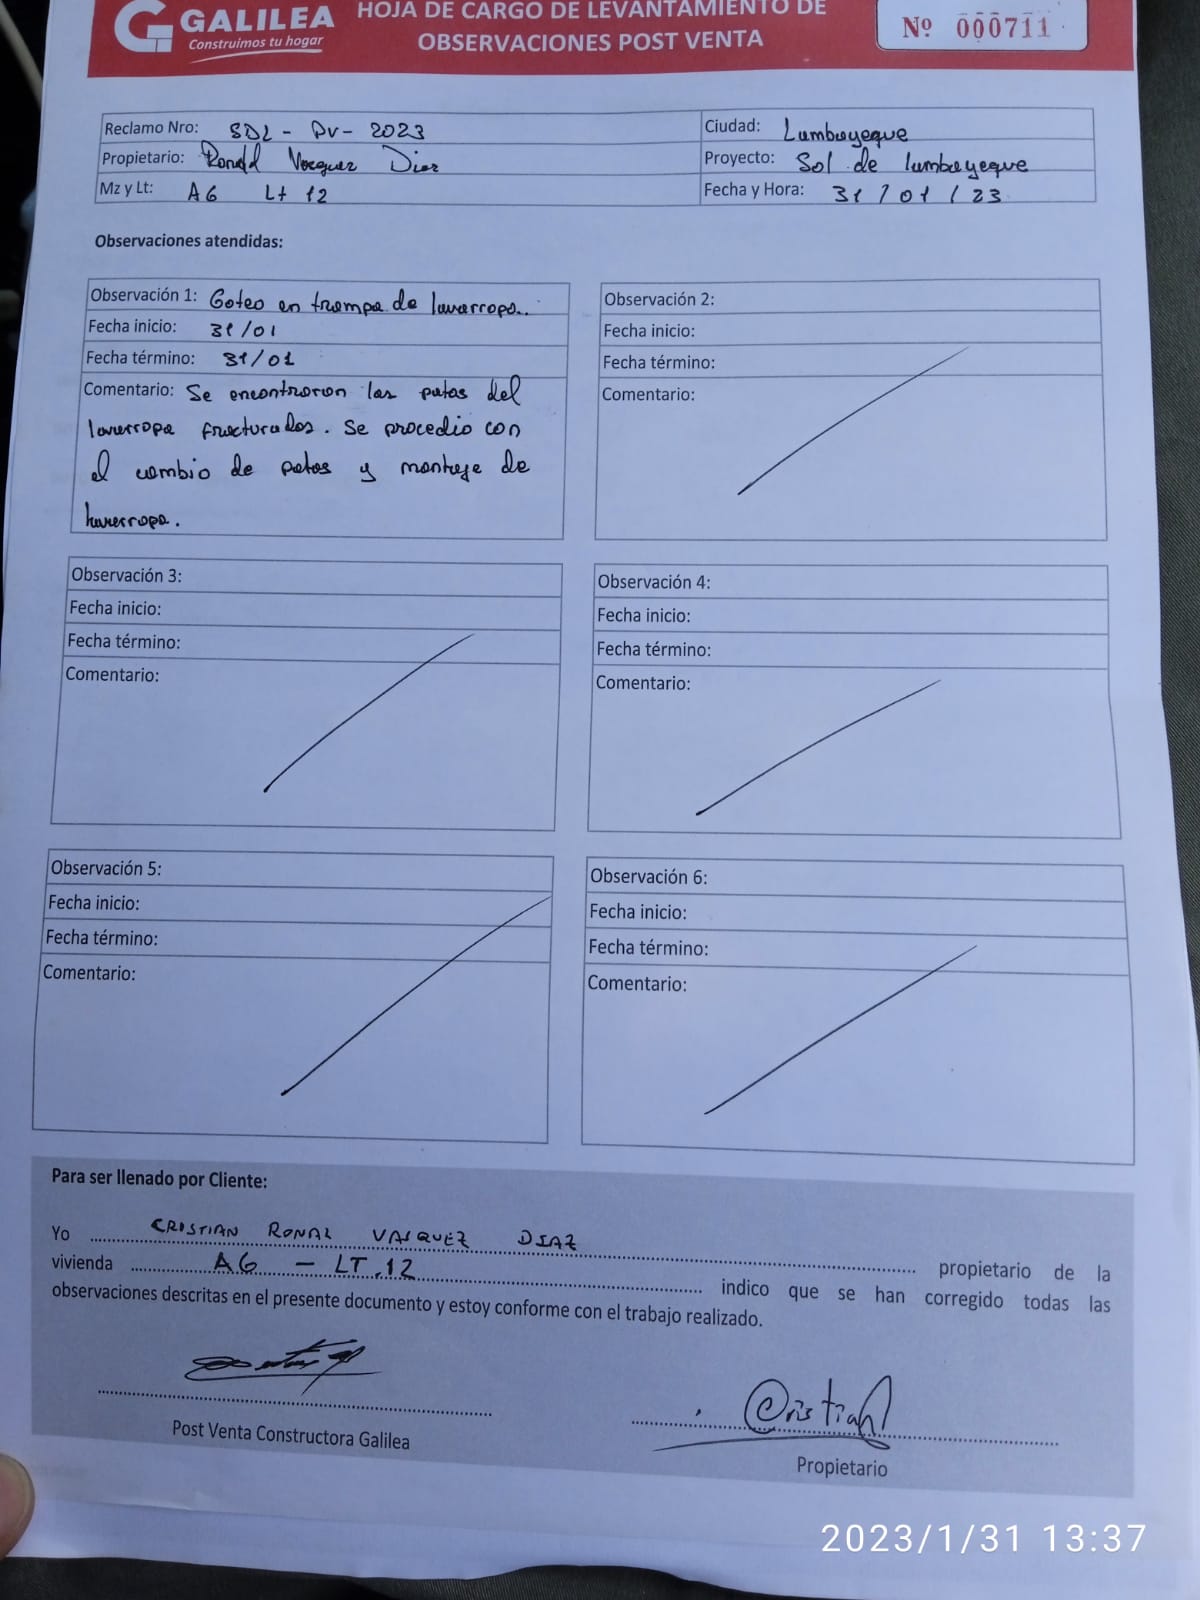 GALILEA
Construimos tu hogar
HOJA DE CARGO DE LEVANTAMIENTO DE
OBSERVACIONES POST VENTA
Nº 000711
Reclamo Nro: SDL - PV - 2023
Propietario: Ronald Vasquez Diaz
Mz y Lt: A6 Lt 12
Ciudad: Lambayeque
Proyecto: Sol de lambayeque
Fecha y Hora: 31 / 01 / 23
Observaciones atendidas:
Observación 1: Goteo en trampa de lavarropa.
Fecha inicio: 31/01
Fecha término: 31/01
Comentario: Se encontraron las patas del
lavarropa fracturadas. Se procedio con
el cambio de patas y montaje de
lavarropa.
Observación 2:
Fecha inicio:
Fecha término:
Comentario:
Observación 3:
Fecha inicio:
Fecha término:
Comentario:
Observación 4:
Fecha inicio:
Fecha término:
Comentario:
Observación 5:
Fecha inicio:
Fecha término:
Comentario:
Observación 6:
Fecha inicio:
Fecha término:
Comentario:
Para ser llenado por Cliente:
Yo CRISTIAN RONAL VASQUEZ DIAZ propietario de la
vivienda A6 - LT.12 indico que se han corregido todas las
observaciones descritas en el presente documento y estoy conforme con el trabajo realizado.
Cristian
Post Venta Constructora Galilea
Propietario
2023/1/31 13:37